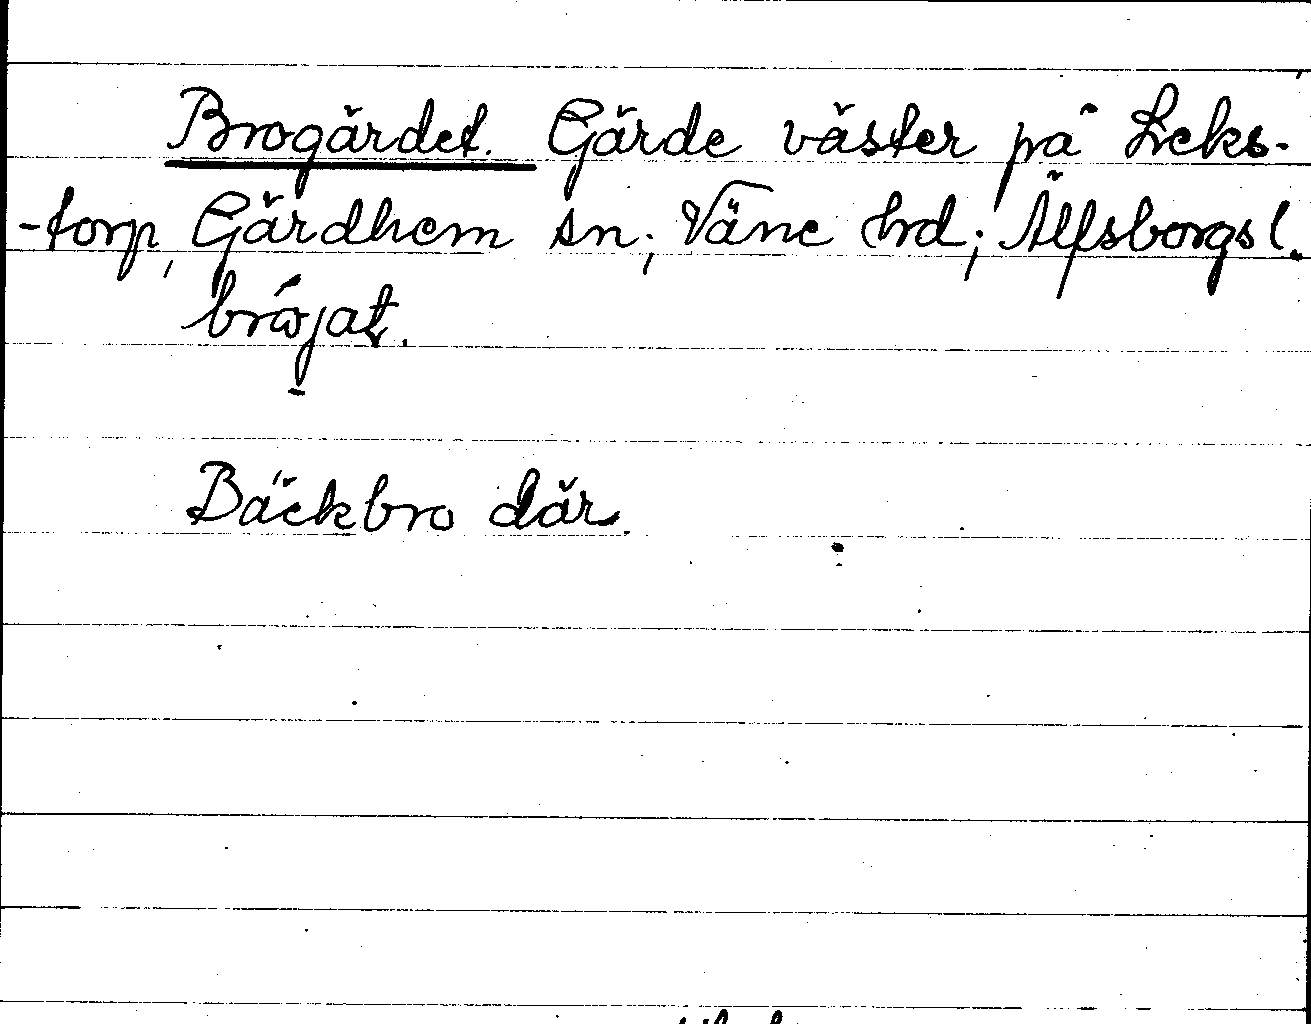 Brogärdet. Gärde väster på Leks-
-torp, Gärdhem sn; Väne hrd; Älfsborgs l.
Bäckbro där.